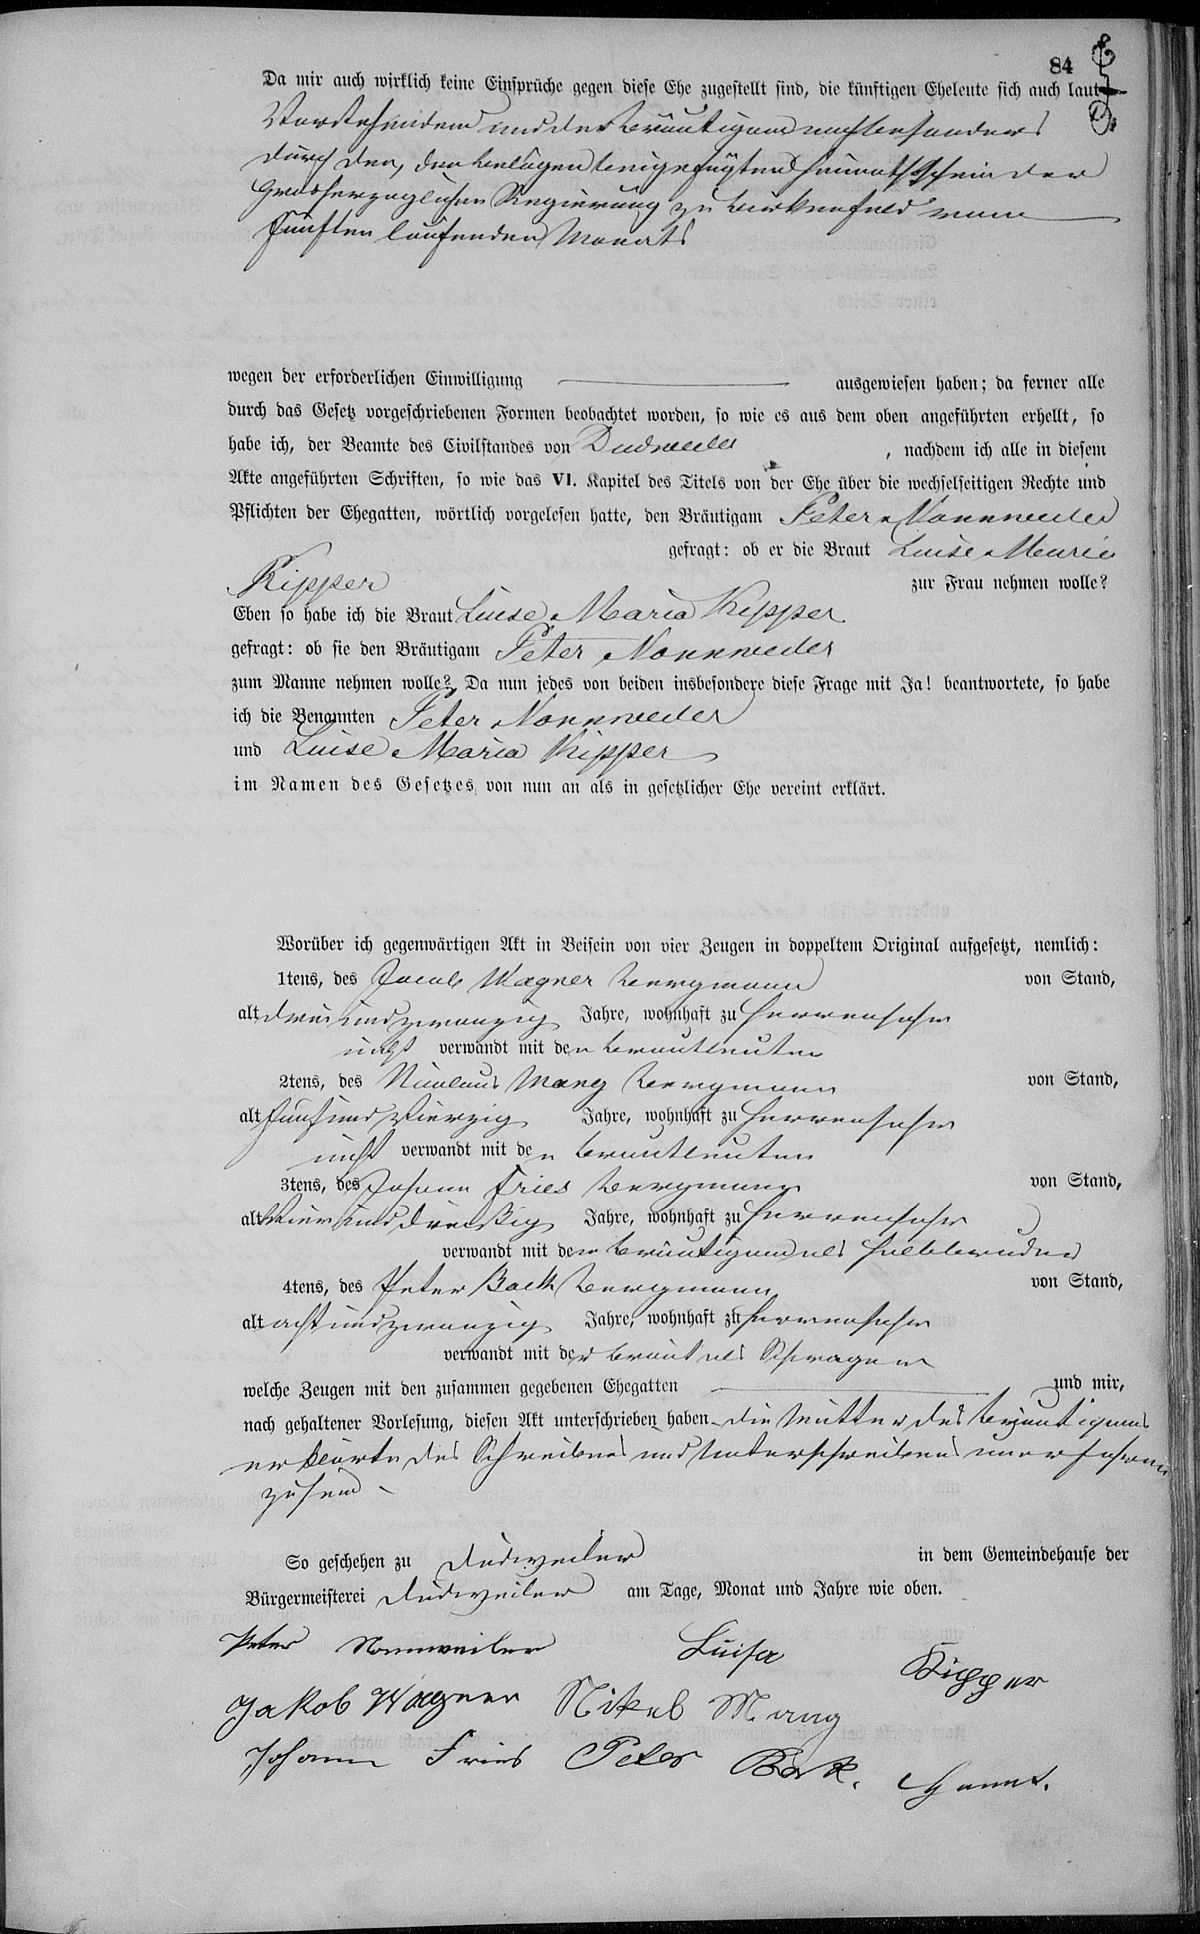 84
Da mir auch wirklich keine Einsprüche gegen diese Ehe zugestellt sind, die künftigen Eheleute sich auch laut
Vorstehendem und der Bräutigam noch besonders
durch den, den Belägen beigefügten Heimathsschein der
Großherzoglichen Regierung zu Birkenfeld vom
fünften laufenden Monats
wegen der erforderlichen Einwilligung ausgewiesen haben; da ferner alle
durch das Gesetz vorgeschriebenen Formen beobachtet worden, so wie es aus dem oben angeführten erhellt, so
habe ich, der Beamte des Civilstandes von Dudweiler, nachdem ich alle in diesem
Akte angeführten Schriften, so wie das VI. Kapitel des Titels von der Ehe über die wechselseitigen Rechte und
Pflichten der Ehegatten, wörtlich vorgelesen hatte, den Bräutigam Peter Nonnweiler
gefragt: ob er die Braut Luise Maria
Kipper zur Frau nehmen wolle?
Eben so habe ich die Braut Luise Maria Kipper
gefragt: ob sie den Bräutigam Peter Nonnweiler
zum Manne nehmen wolle? Da nun jedes von beiden insbesondere diese Frage mit Ja! beantwortete, so habe
ich die Benannten Peter Nonnweiler
und Luise Maria Kipper
im Namen des Gesetzes von nun an als in gesetzlicher Ehe vereint erklärt.
Worüber ich gegenwärtigen Akt in Beisein von vier Zeugen in doppeltem Original aufgesetzt, nemlich:
1tens, des Jacob Wagner Bergmann von Stand,
alt dreiundzwanzig Jahre, wohnhaft zu Herrensohr
nicht verwandt mit den Brautleuten
2tens, des Nicolaus Mang Bergmann von Stand,
alt fünfundvierzig Jahre, wohnhaft zu Herrensohr
nicht verwandt mit den Brautleuten
3tens, des Johann Fries Bergmann von Stand,
alt vierunddreißig Jahre, wohnhaft zu Herrensohr
verwandt mit dem Bräutigam als Halbbruder
4tens, des Peter Back Bergmann von Stand,
alt achtundzwanzig Jahre, wohnhaft zu Herrensohr
verwandt mit der Braut als Schwager
welche Zeugen mit den zusammen gegebenen Ehegatten und mir,
nach gehaltener Vorlesung, diesen Akt unterschrieben haben die Mutter des Bräutigams
erklärte des Schreibens und Unterschreibens unerfahren
zu sein
So geschehen zu Dudweiler in dem Gemeindehause der
Bürgermeisterei Dudweiler am Tage, Monat und Jahre wie oben.
Peter Nonnweiler Luisa Kipper
Jakob Wagner Nikel Mang
Johann Fries Peter Back.